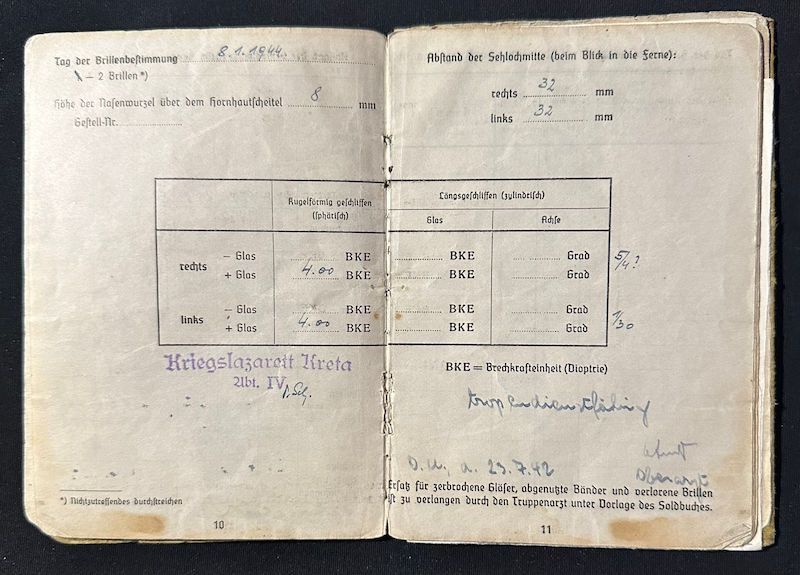 Tag der Brillenbestimmung 8.1.1944
1 — 2 Brillen *)
Höhe der Nasenwurzel über dem Hornhautscheitel 8 mm
Gestell-Nr.
Kugelförmig geschliffen
(sphärisch)
rechts
— Glas BKE
+ Glas 4.00 BKE
links
— Glas BKE
+ Glas 4.00 BKE
Kriegslazarett Kreta
Abt. IV
*) Nichtzutreffendes durchstreichen
10
Abstand der Sehlochmitte (beim Blick in die Ferne):
rechts 32 mm
links 32 mm
Längsgeschliffen (zylindrisch)
Glas Achse
BKE Grad 5/4?
BKE Grad
BKE Grad 1/30
BKE Grad
BKE = Brechkrafteinheit (Dioptrie)
tropendienstfähig
D.U., d. 23.7.42
Oberarzt
Ersatz für zerbrochene Gläser, abgenutzte Bänder und verlorene Brillen
ist zu verlangen durch den Truppenarzt unter Vorlage des Soldbuches.
11